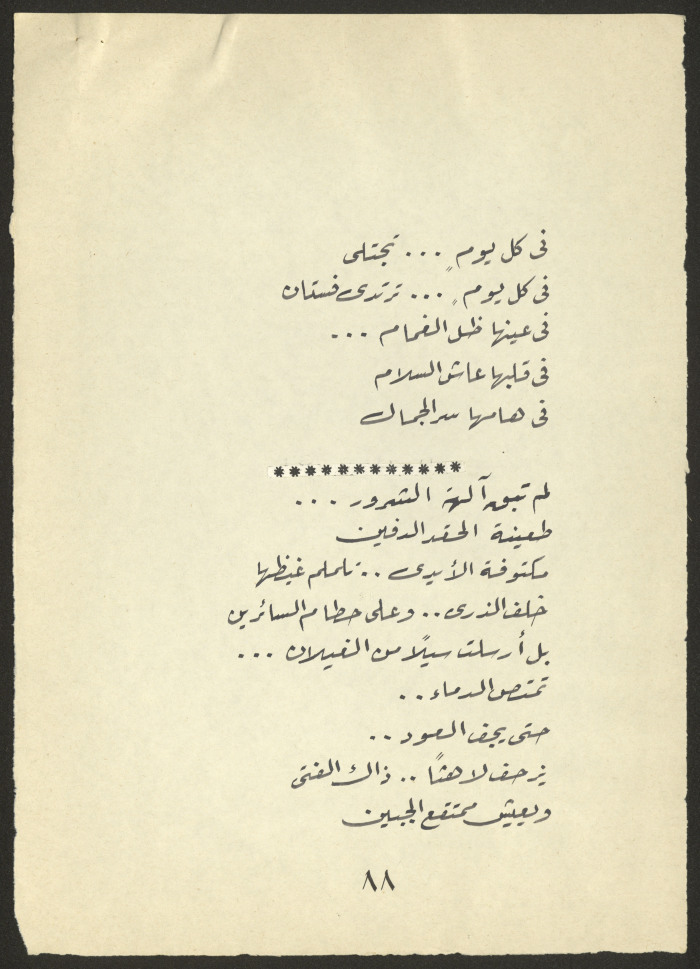 فى كل يومٍ ... تجتلى
فى كل يومٍ ... ترتدى فستان
فى عينها ظل الغمام ...
فى قلبها عاش السلام
فى هامها سر الجمال
************
لم تبق آلهة الشرور ...
طعينة الحقد الدفين
مكتوفة الأيدى .. تلملم غيظها
خلف الذرى .. وعلى حطام السائرين
بل أرسلت سيلًا من الغيلان ...
تمتص الدماء ..
حتى يجف العود ..
يزحف لاهثًا .. ذاك الفتى
ويعيش ممتقع الجبين
٨٨